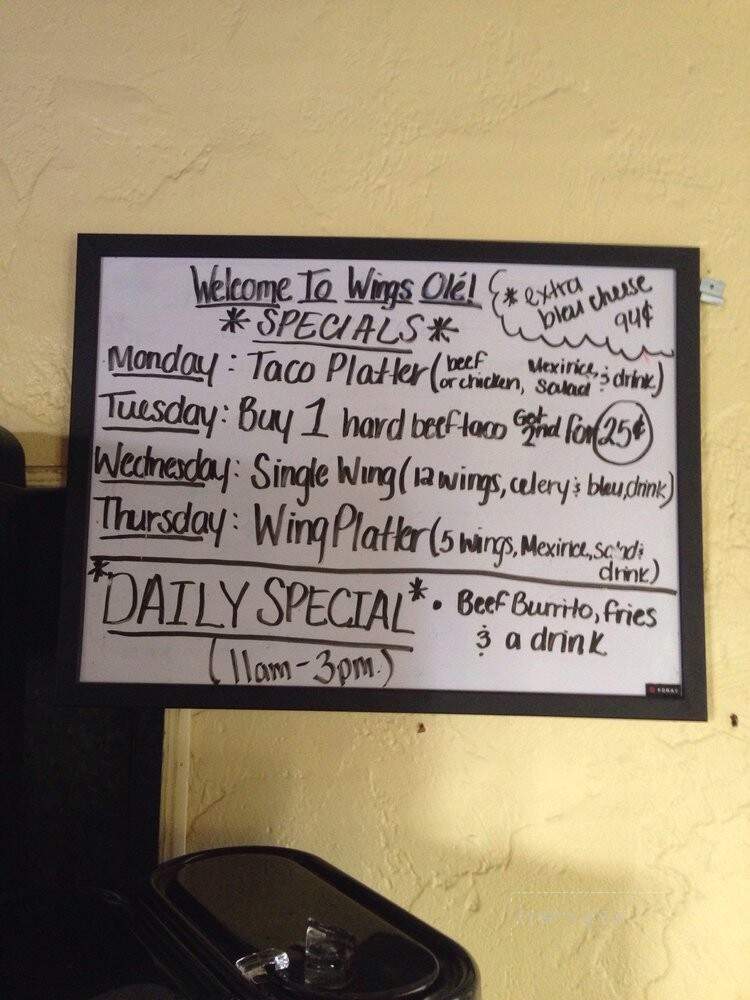 Welcome To Wings Olé!
* extra
bleu cheese
94¢
*SPECIALS*
Monday: Taco Platter (beef or chicken, Mexirice, salad & drink)
Tuesday: Buy 1 hard beef taco Get 2nd for 25¢
Wednesday: Single Wing (12 wings, celery & bleu, drink)
Thursday: Wing Platter (5 wings, Mexirice, &
drink)
*DAILY SPECIAL*
(11am-3pm)
• Beef Burrito, fries
& a drink